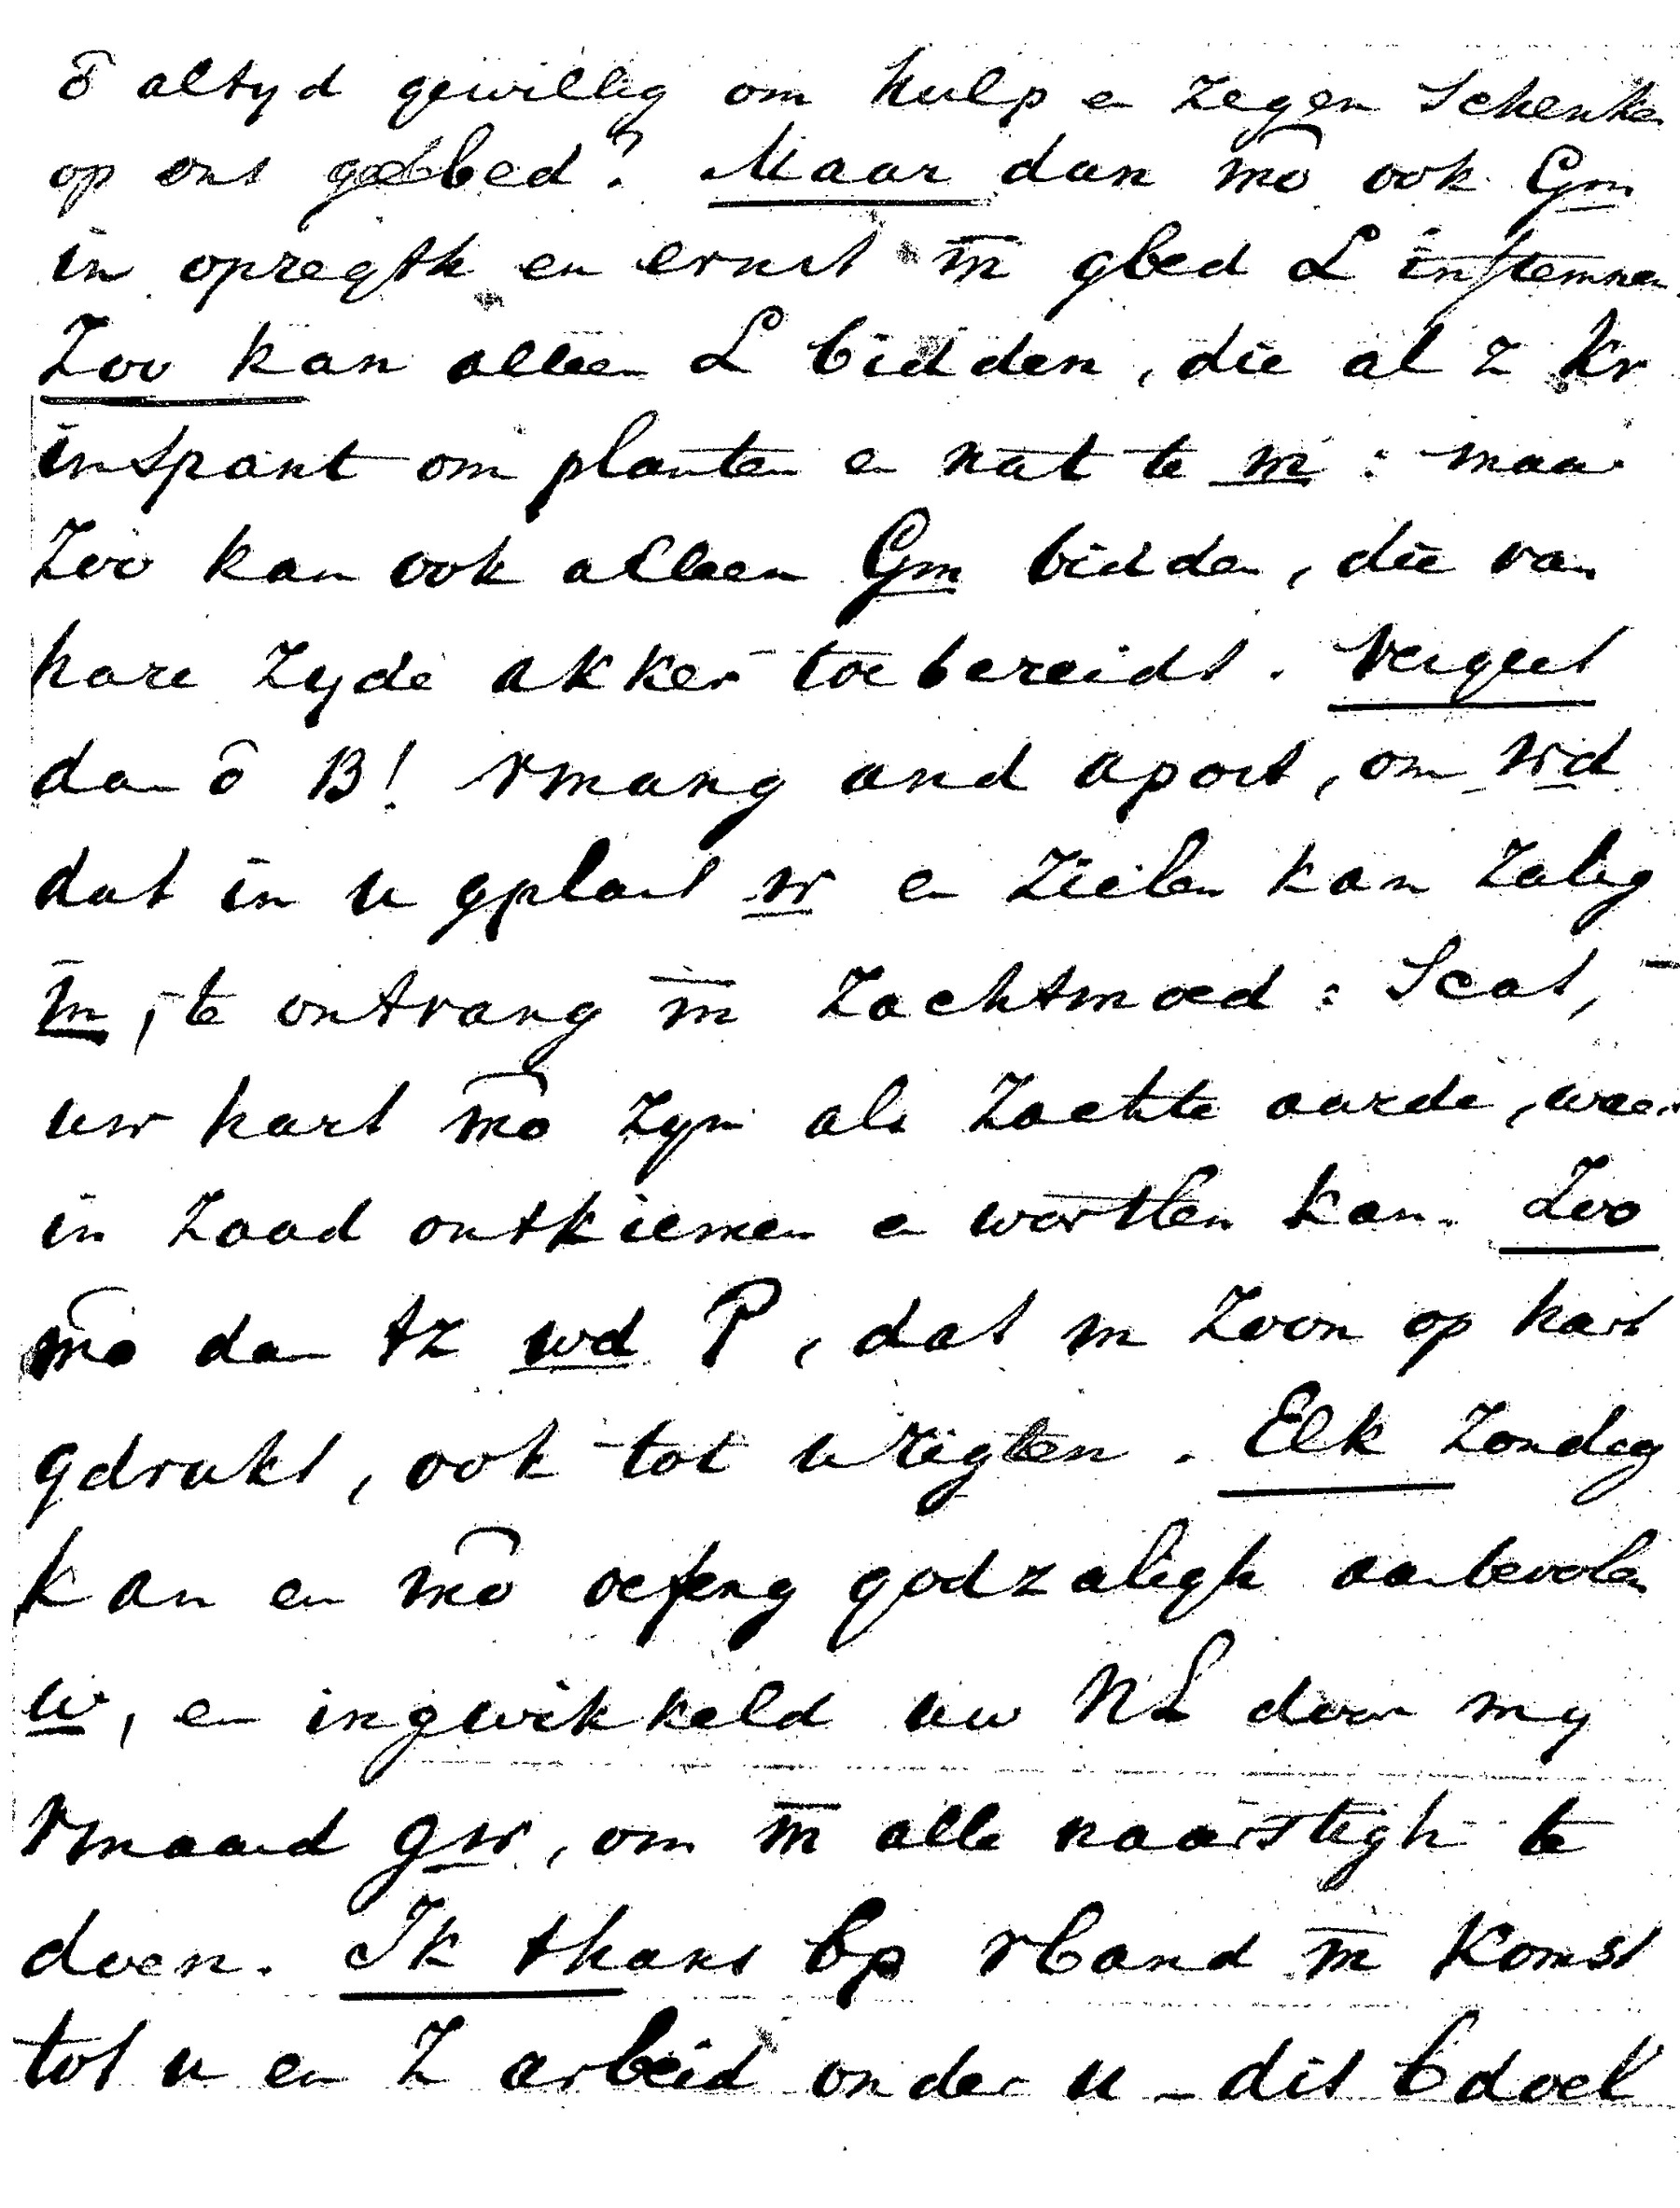 ō altyd gewillig om hulp e zegen schenke
op ons gebed? Maar dan mō ook Gm
in opregth en ernst m̄ gbed L instemmen.
Zoo kan alleen L bidden, die al z kr
inspant om planten e nat te m : maar
Zoo kan ook alleen Gm bidden, die van
hare zyde akker toebereidt. Vergeet
dan ō B! vmang and apost, om wd
dat in u gplant w e zielen kan zalig
m, te ontvang m̄ zachtmoed : Scat,
uw hart mō zyn als zachte aarde, waar
in zaad ontkiemen e wortlen kan. Zoo
mō dan tz wd P, dat m zoon op hart
gdrukt, ook tot u rigten. Elk zondag
kan en mō oefeng godzaligh aanbevolen
w, en ingwikkeld uw NL door my
vmaand gw, om m̄ alle naarstigh te
doen. Ik thans bp vband m̄ komst
tot u en z arbeid onder u - dit bdoel